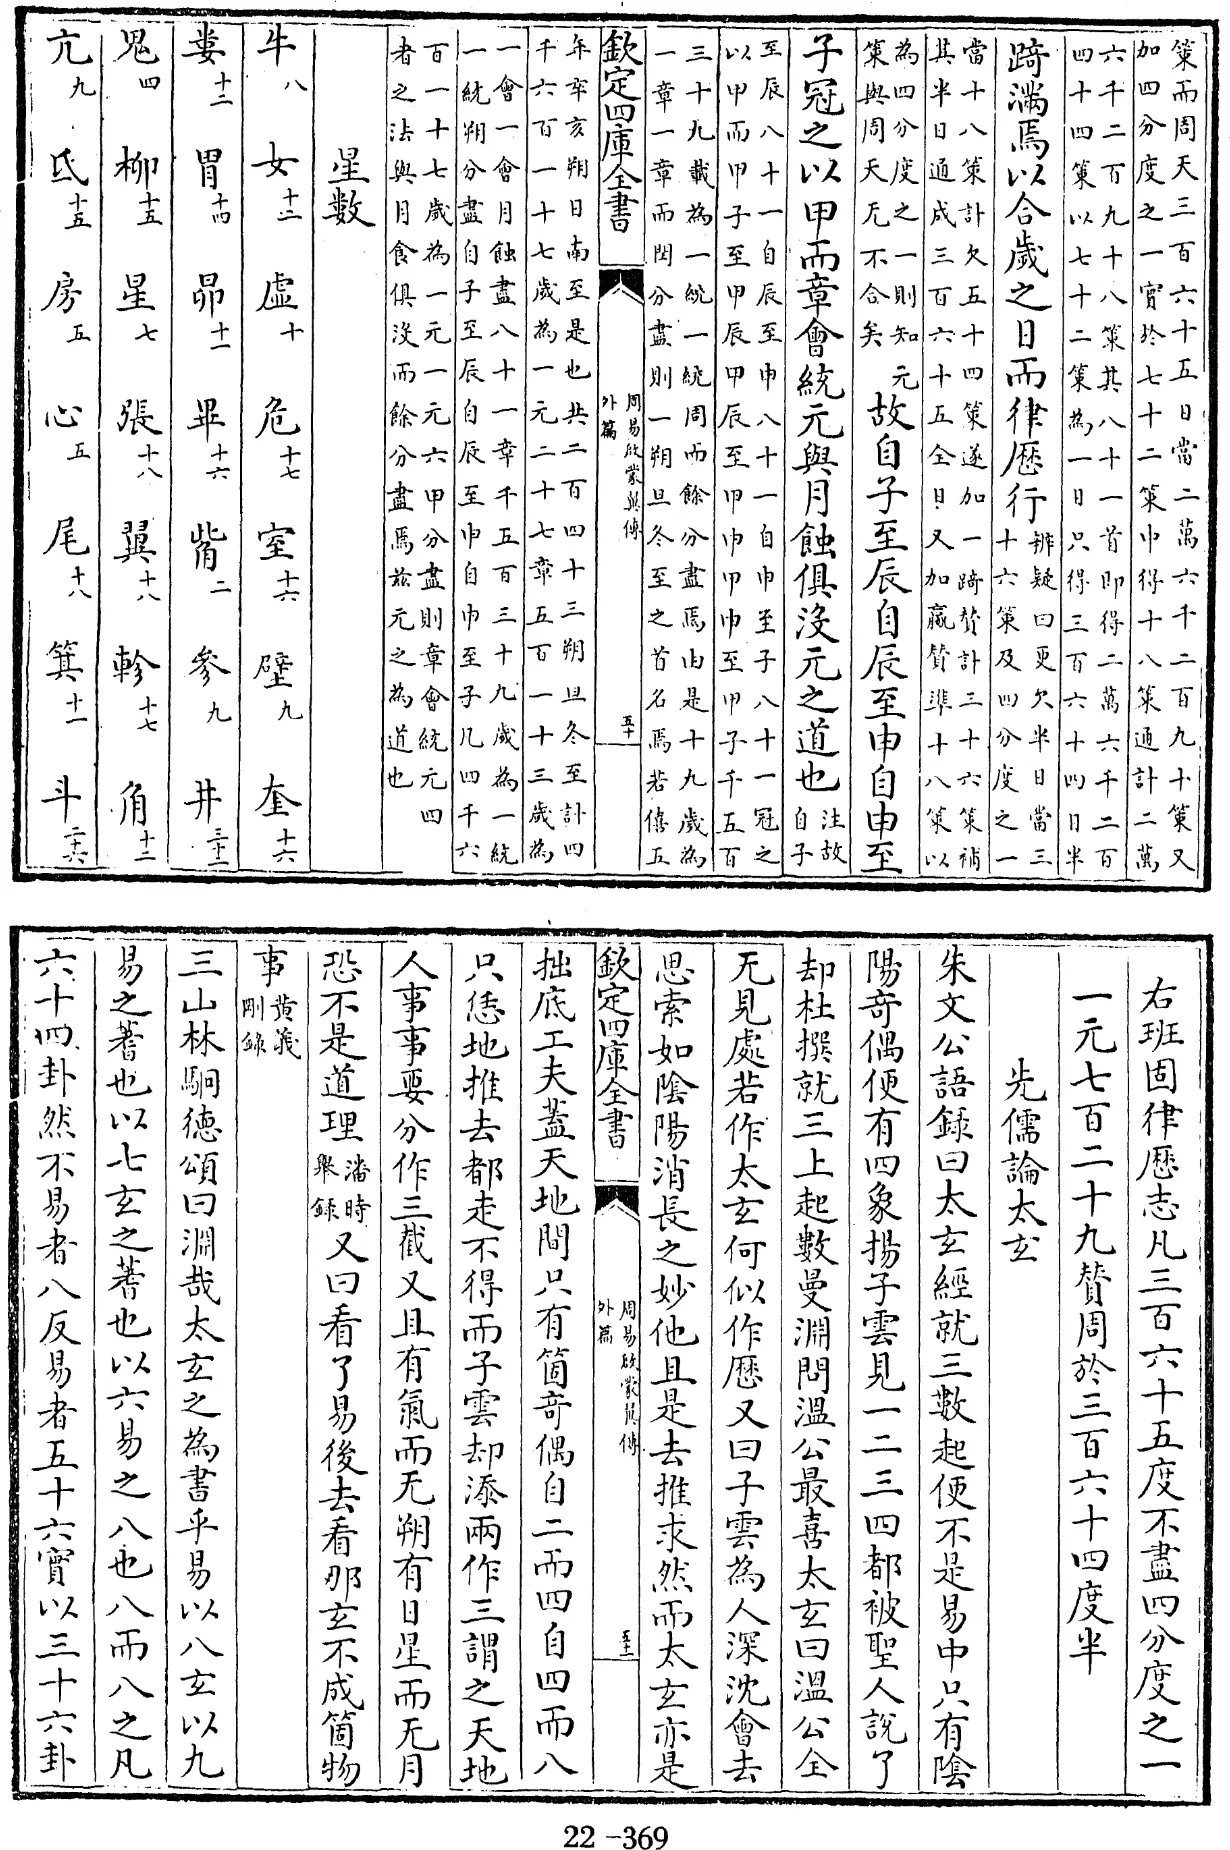 策而周天三百六十五日當二萬六千二百九十策又
加四分度之一實於七十二策中得十八策通計二萬
六千二百九十八策其八十一首即得二萬六千二百
四十四策以七十二策為一日只得三百六十四日半
踦滿焉以合歲之日而律歷行
辨疑曰更欠半日當三
十六策及四分度之一
當十八策計欠五十四策遂加一踦贊計三十六策補
其半日通成三百六十五全日又加嬴贊準十八策以
為四分度之一則知元
策與周天无不合矣
故自子至辰自辰至申自申至
子冠之以甲而章會統元與月蝕俱沒元之道也
注故
自子
至辰八十一自辰至申八十一自申至子八十一冠之
以甲而甲子至甲辰甲辰至甲申甲申至甲子千五百
三十九載為一統一統周而餘分盡焉由是十九歲為
一章一章而閏分盡則一朔旦冬至之首名焉若僖五
欽定四庫全書
周易啟蒙翼傳
外篇
五十
年辛亥朔日南至是也共二百四十三朔旦冬至計四
千六百一十七歲為一元二十七章五百一十三歲為
一會一會月蝕盡八十一章千五百三十九歲為一統
一統朔分盡自子至辰自辰至申自申至子凡四千六
百一十七歲為一元一元六甲分盡則章會統元四
者之法與月食俱沒而餘分盡焉茲元之為道也
星數
牛八 女十二 虛十 危十七 室十六 壁九 奎十六
婁十二 胃十四 昴十一 畢十六 觜二 參九 井三十三
鬼四 柳十五 星七 張十八 翼十八 軫十七 角十二
亢九 氐十五 房五 心五 尾十八 箕十一 斗二十六
右班固律歷志凡三百六十五度不盡四分度之一
一元七百二十九贊周於三百六十四度半
先儒論太玄
朱文公語錄曰太玄經就三數起便不是易中只有陰
陽奇偶便有四象揚子雲見一二三四都被聖人說了
却杜撰就三上起數曼淵問溫公最喜太玄曰溫公全
无見處若作太玄何似作歷又曰子雲為人深沈會去
思索如陰陽消長之妙他且是去推求然而太玄亦是
欽定四庫全書
周易啟蒙翼傳
外篇
五十一
拙底工夫蓋天地間只有箇奇偶自二而四自四而八
只恁地推去都走不得而子雲却添兩作三謂之天地
人事事要分作三截又且有氣而无朔有日星而无月
恐不是道理
潘時
舉錄
又曰看了易後去看那玄不成箇物
事
黃義
剛錄
三山林駉德頌曰淵哉太玄之為書乎易以八玄以九
易之蓍也以七玄之蓍也以六易之八也八而八之凡
六十四卦然不易者八反易者五十六實以三十六卦
22-369